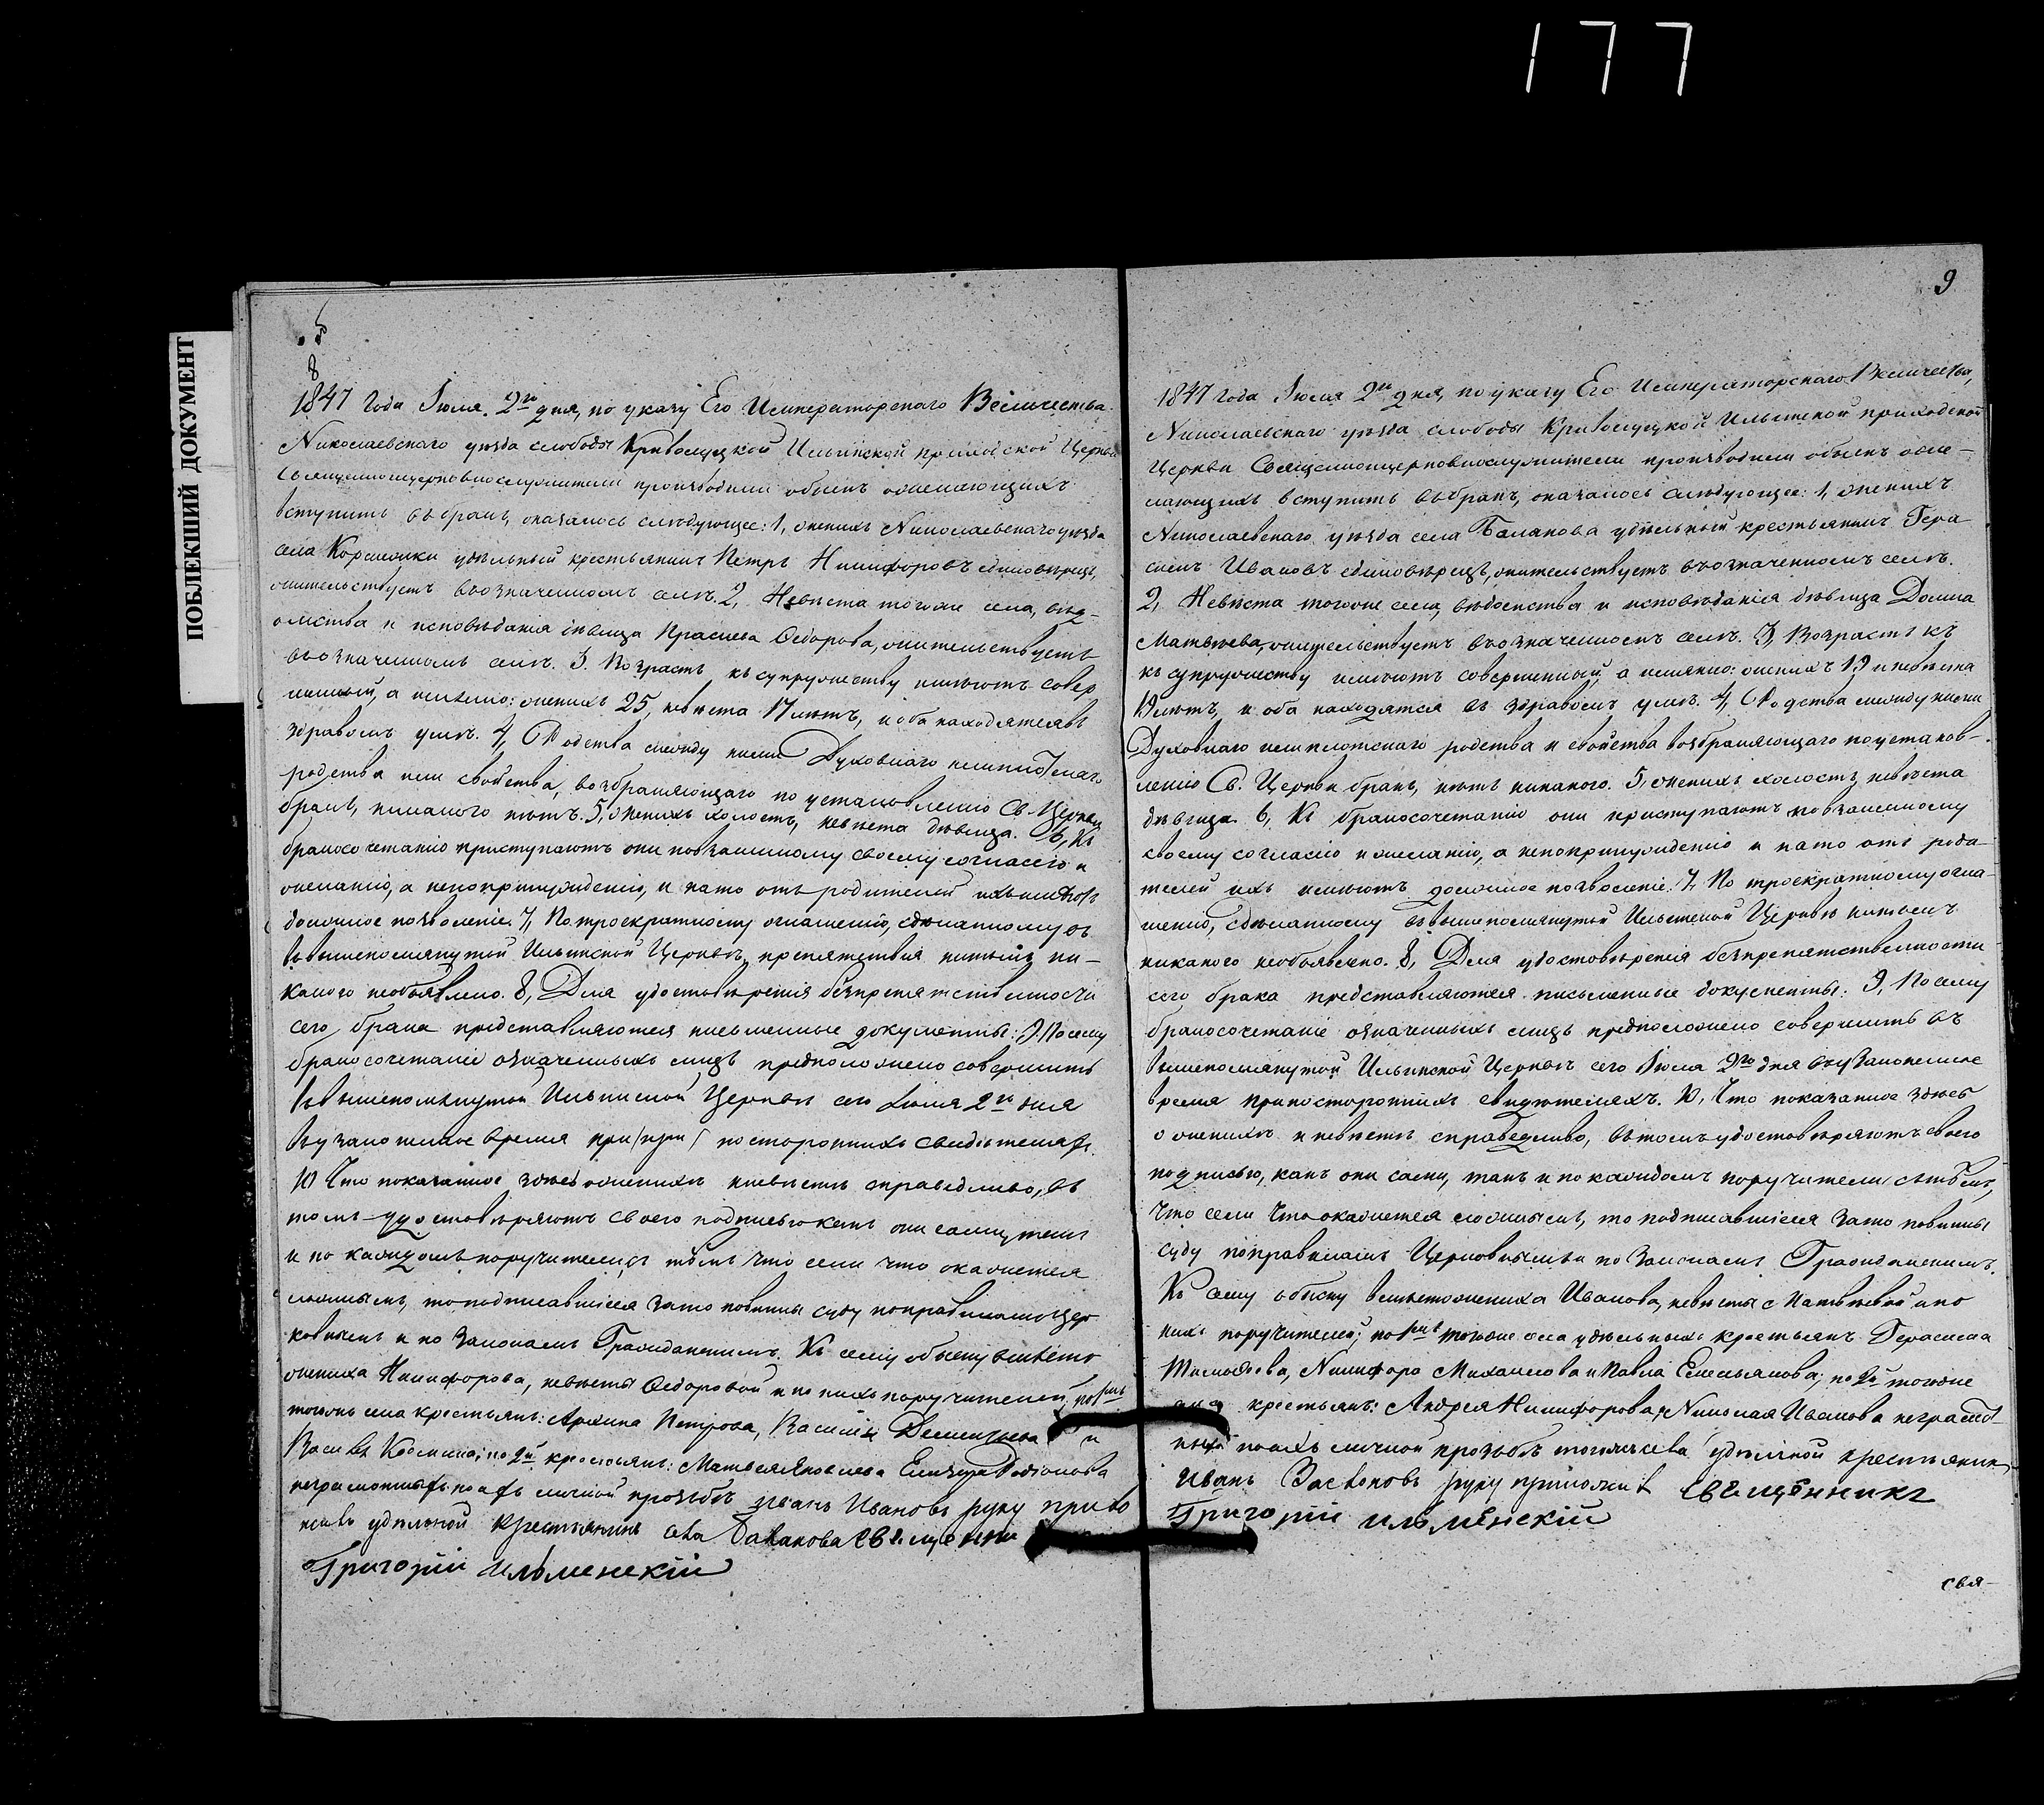 177
ПОБЛЕКШИЙ ДОКУМЕНТ
8
1847 Года Іюля 2го дня, по указу Его Императорскаго Величества
Николаевскаго уѣзда слободы Криволуцкой Ильинской приходской Церкви
Священноцерковнослужители производили обыскъ о желающихъ
вступить въ бракъ, оказалось слѣдующее: 1, женихъ Николаевскаго уѣзда
села удѣльный крестьянинъ Петръ Никифоровъ единовѣрецъ,
жительствуетъ въ означенномъ селѣ. 2, Невѣста тогоже села, вѣд-
омства и исповѣданія дѣвица Федорова, жительствуетъ
въ означенномъ селѣ. 3. Возрастъ къ супружеству имѣютъ совер
шенный, а именно: женихъ 25, невѣста 17 лѣтъ, и оба находятся въ
здравомъ умѣ. 4, Родства между ними Духовнаго или плотскаго
родства или свойства, возбраняющаго по установленію Св. Церкви
бракъ, никакого нѣтъ. 5, женихъ холостъ, невѣста дѣвица. 6, Къ
бракосочетанію приступаютъ они по взаимному своему согласію и
желанію, а не по принужденію, и на то отъ родителей ихъ имѣютъ
должное позволеніе. 7, По троекратному оглашенію, сдѣланному въ
вышепомянутой Ильинской Церквѣ, препятствія никѣмъ ни-
какого необъявлено. 8, Для удостовѣренія безпрепятственности
сего брака представляются письменные документы: 9, По сему
бракосочетаніе означенныхъ лицъ предположено совершить
въ вышепомянутой Ильинской Церкви сего Іюля 2го дня
въ узаконенное время при /при/ постороннихъ свидѣтеляхъ.
10 Что показанное здѣсь о женихѣ и невѣстѣ справедливо, въ
томъ удостовѣряютъ своего подписью какъ они сами, такъ
и по каждомъ поручители съ тѣмъ что если что окажется
ложнымъ, то подписавшіеся за то повинны суду по правиламъ Цер
ковнымъ и по Законамъ Гражданскимъ. Къ сему обыску вмѣсто
жениха Никифорова, невѣсты Федоровой и по нихъ поручителей, по
тогожъ села крестьянъ: Архипа Петрова, Василія Дементьева и
по 2й крестьянъ: Матвея Яковлева Родіонова
неграмотныхъ по ихъ личной прозьбѣ Иванъ Ивановъ руку прило
жилъ удѣльной крестьянинъ села Балакова Священник
Григорій Ильменскій
9
1847 Года Іюля 2го дня, по указу Его Императорскаго Величества,
Николаевскаго уѣзда слободы Криволуцкой Ильинской приходской
Церкви Священноцерковнослужители производили обыскъ о же-
лающихъ вступить въ бракъ, оказалось слѣдующее: 1, женихъ
Николаевскаго уѣзда села Балакова удѣльный крестьянинъ Гера
симъ Ивановъ единовѣрецъ, жительствуетъ въ означенномъ селѣ.
2, Невѣста тогоже села, вѣдомства и исповѣданія дѣвица Домна
Матвѣева, жительствуетъ въ означенномъ селѣ. 3, Возрастъ къ
къ супружеству имѣютъ совершенный, а именно: женихъ 19 и невѣста
19 лѣтъ, и оба находятся въ здравомъ умѣ. 4, Родства между ними
Духовнаго или плотскаго родства и свойства возбраняющаго по установ-
ленію Св. Церкви бракъ, нѣтъ никакого. 5, женихъ холостъ, невѣста
дѣвица. 6, Къ бракосочетанію они приступаютъ по взаимному
своему согласію и желанію, а не по принужденію и на то отъ роди-
телей ихъ имѣютъ должное позволеніе. 7, По троекратному огла-
шенію, сдѣланному въ вышепомянутой Ильинской Церквѣ никѣмъ
никакого необъявлено. 8, Для удостовѣренія безпрепятственности
сего брака представляются письменные документы: 9, По сему
бракосочетаніе означенныхъ лицъ предположено совершить въ
вышепомянутой Ильинской Церквѣ сего Іюля 2го дня въ узаконенное
время при постороннихъ свидѣтеляхъ. 10, Что показанное здѣсь
о женихѣ и невѣстѣ справедливо, въ томъ удостовѣряютъ своего
подписью, какъ они сами, такъ и по каждомъ поручители съ тѣмъ,
Что если Что окажется ложнымъ, то подписавшіеся за то повинны
суду по правиламъ Церковнымъ и по Законамъ Гражданскимъ.
Къ сему обыску вмѣсто жениха Иванова, невѣсты Матвѣевой и по
нихъ поручителей; по тогоже села удѣльныхъ крестьянъ Герасима
Никифора Михайлова и Павла Емельянова; по 2й тогоже
крестьянъ: Андрея Никифорова, Николая Иванова неграмот
ныхъ по ихъ личной прозьбѣ тогожъ села удѣлной крестьянин
Иванъ руку приложилъ Священникъ
Григорій Ильменскій
свя-